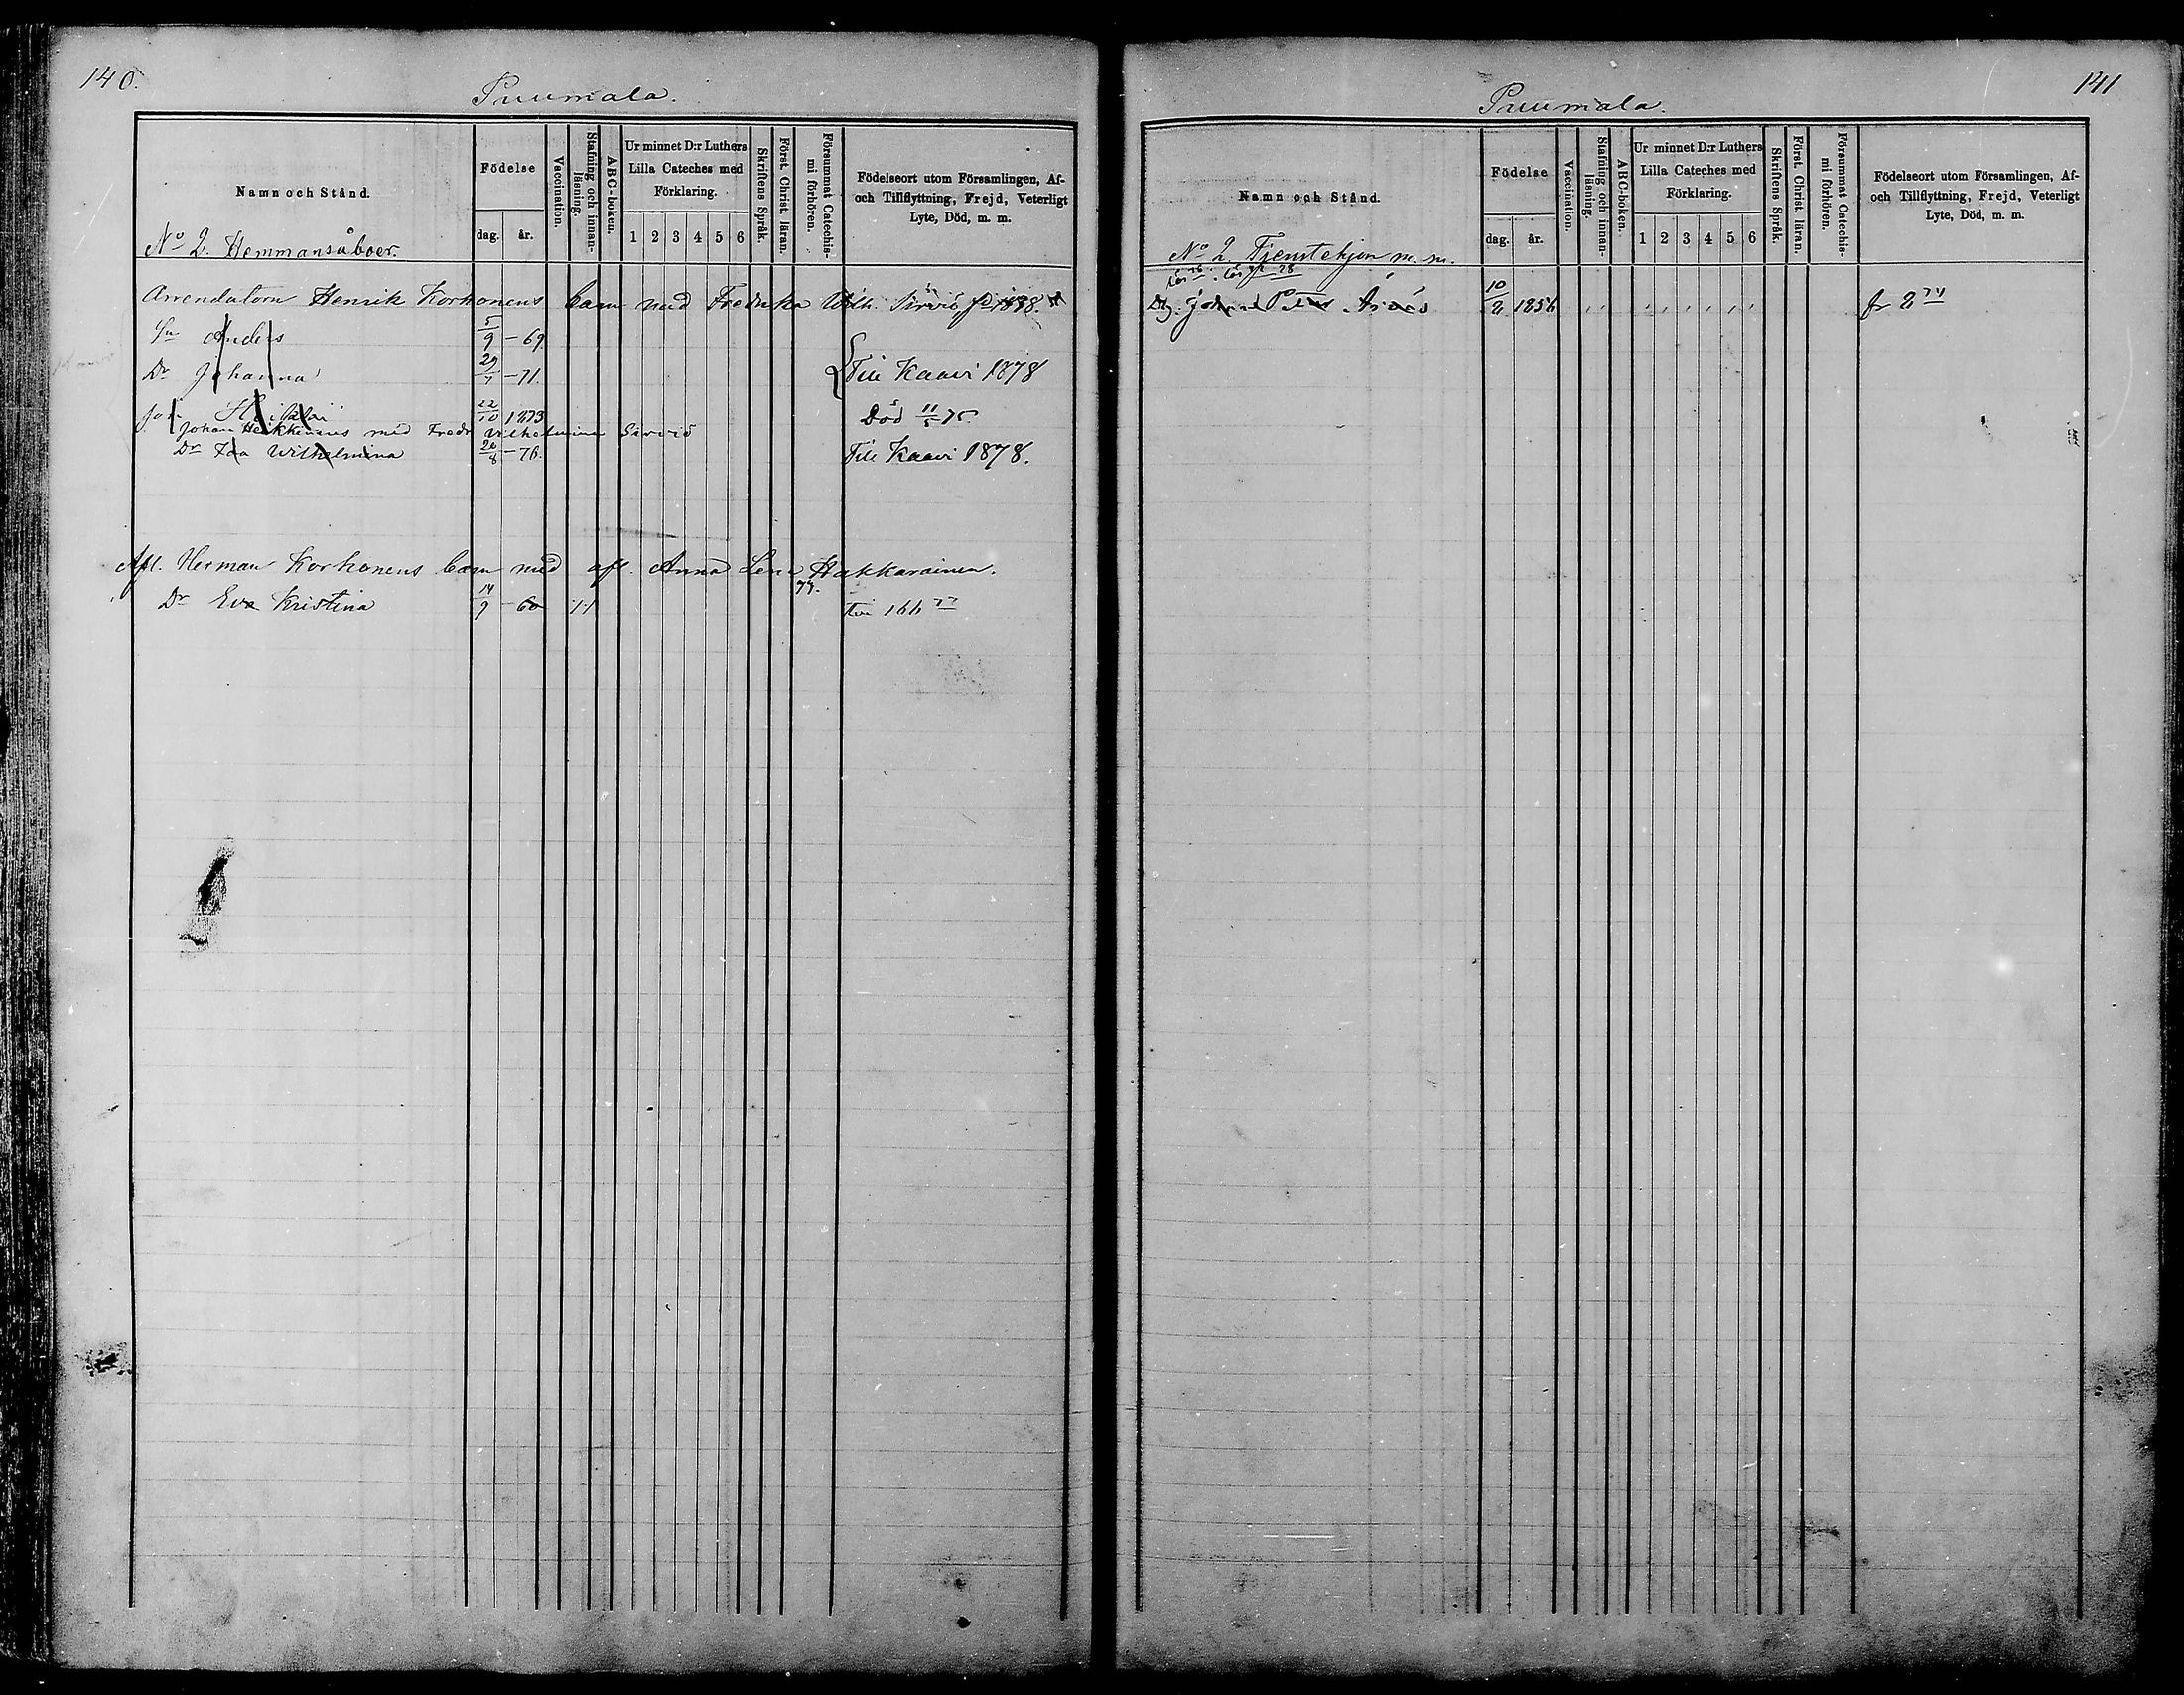 140.
Puumala.
Namn och Stånd.
Födelse
dag. år.
Vaccination.
Stafning och innan-läsning.
ABC-boken.
Ur minnet D:r Luthers
Lilla Cateches med
Förklaring.
1 2 3 4 5 6
Skriftens Språk.
Först. Christ. läran.
Försummat Catechis-mi förhören.
Födelseort utom Församlingen, Af-
och Tillflyttning, Frejd, Veterligt
Lyte, Död, m. m.
No 2. Hemmansåboer.
Arrendatorn Henrik Korhonens barn med Fredrika Wilh. Sirviö,
Sn Anders 5/9 - 69.
Dr Johanna 29/1 - 71. Till Kaavi 1878
22/10 1873 Död 11/5 75.
Johan Heikkinens med Fredr. Vilhelmina Sirviö
Dr Ida Wilhelmina 20/8 - 76. Till Kaavi 1878.
Afl. Herman Korhonens barn med afl. Anna Lena Hakkarainen.
77.
Dr Eva Kristina 14/9 - 60 166 77
141
Puumala.
Namn och Stånd.
Födelse
dag. år.
Vaccination.
Stafning och innan-läsning.
ABC-boken.
Ur minnet D:r Luthers
Lilla Cateches med
Förklaring.
1 2 3 4 5 6
Skriftens Språk.
Först. Christ. läran.
Försummat Catechis-mi förhören.
Födelseort utom Församlingen, Af-
och Tillflyttning, Frejd, Veterligt
Lyte, Död, m. m.
No 2. Tjenstehjon m. m.
Drg. 10/2 1856 fr 2 74